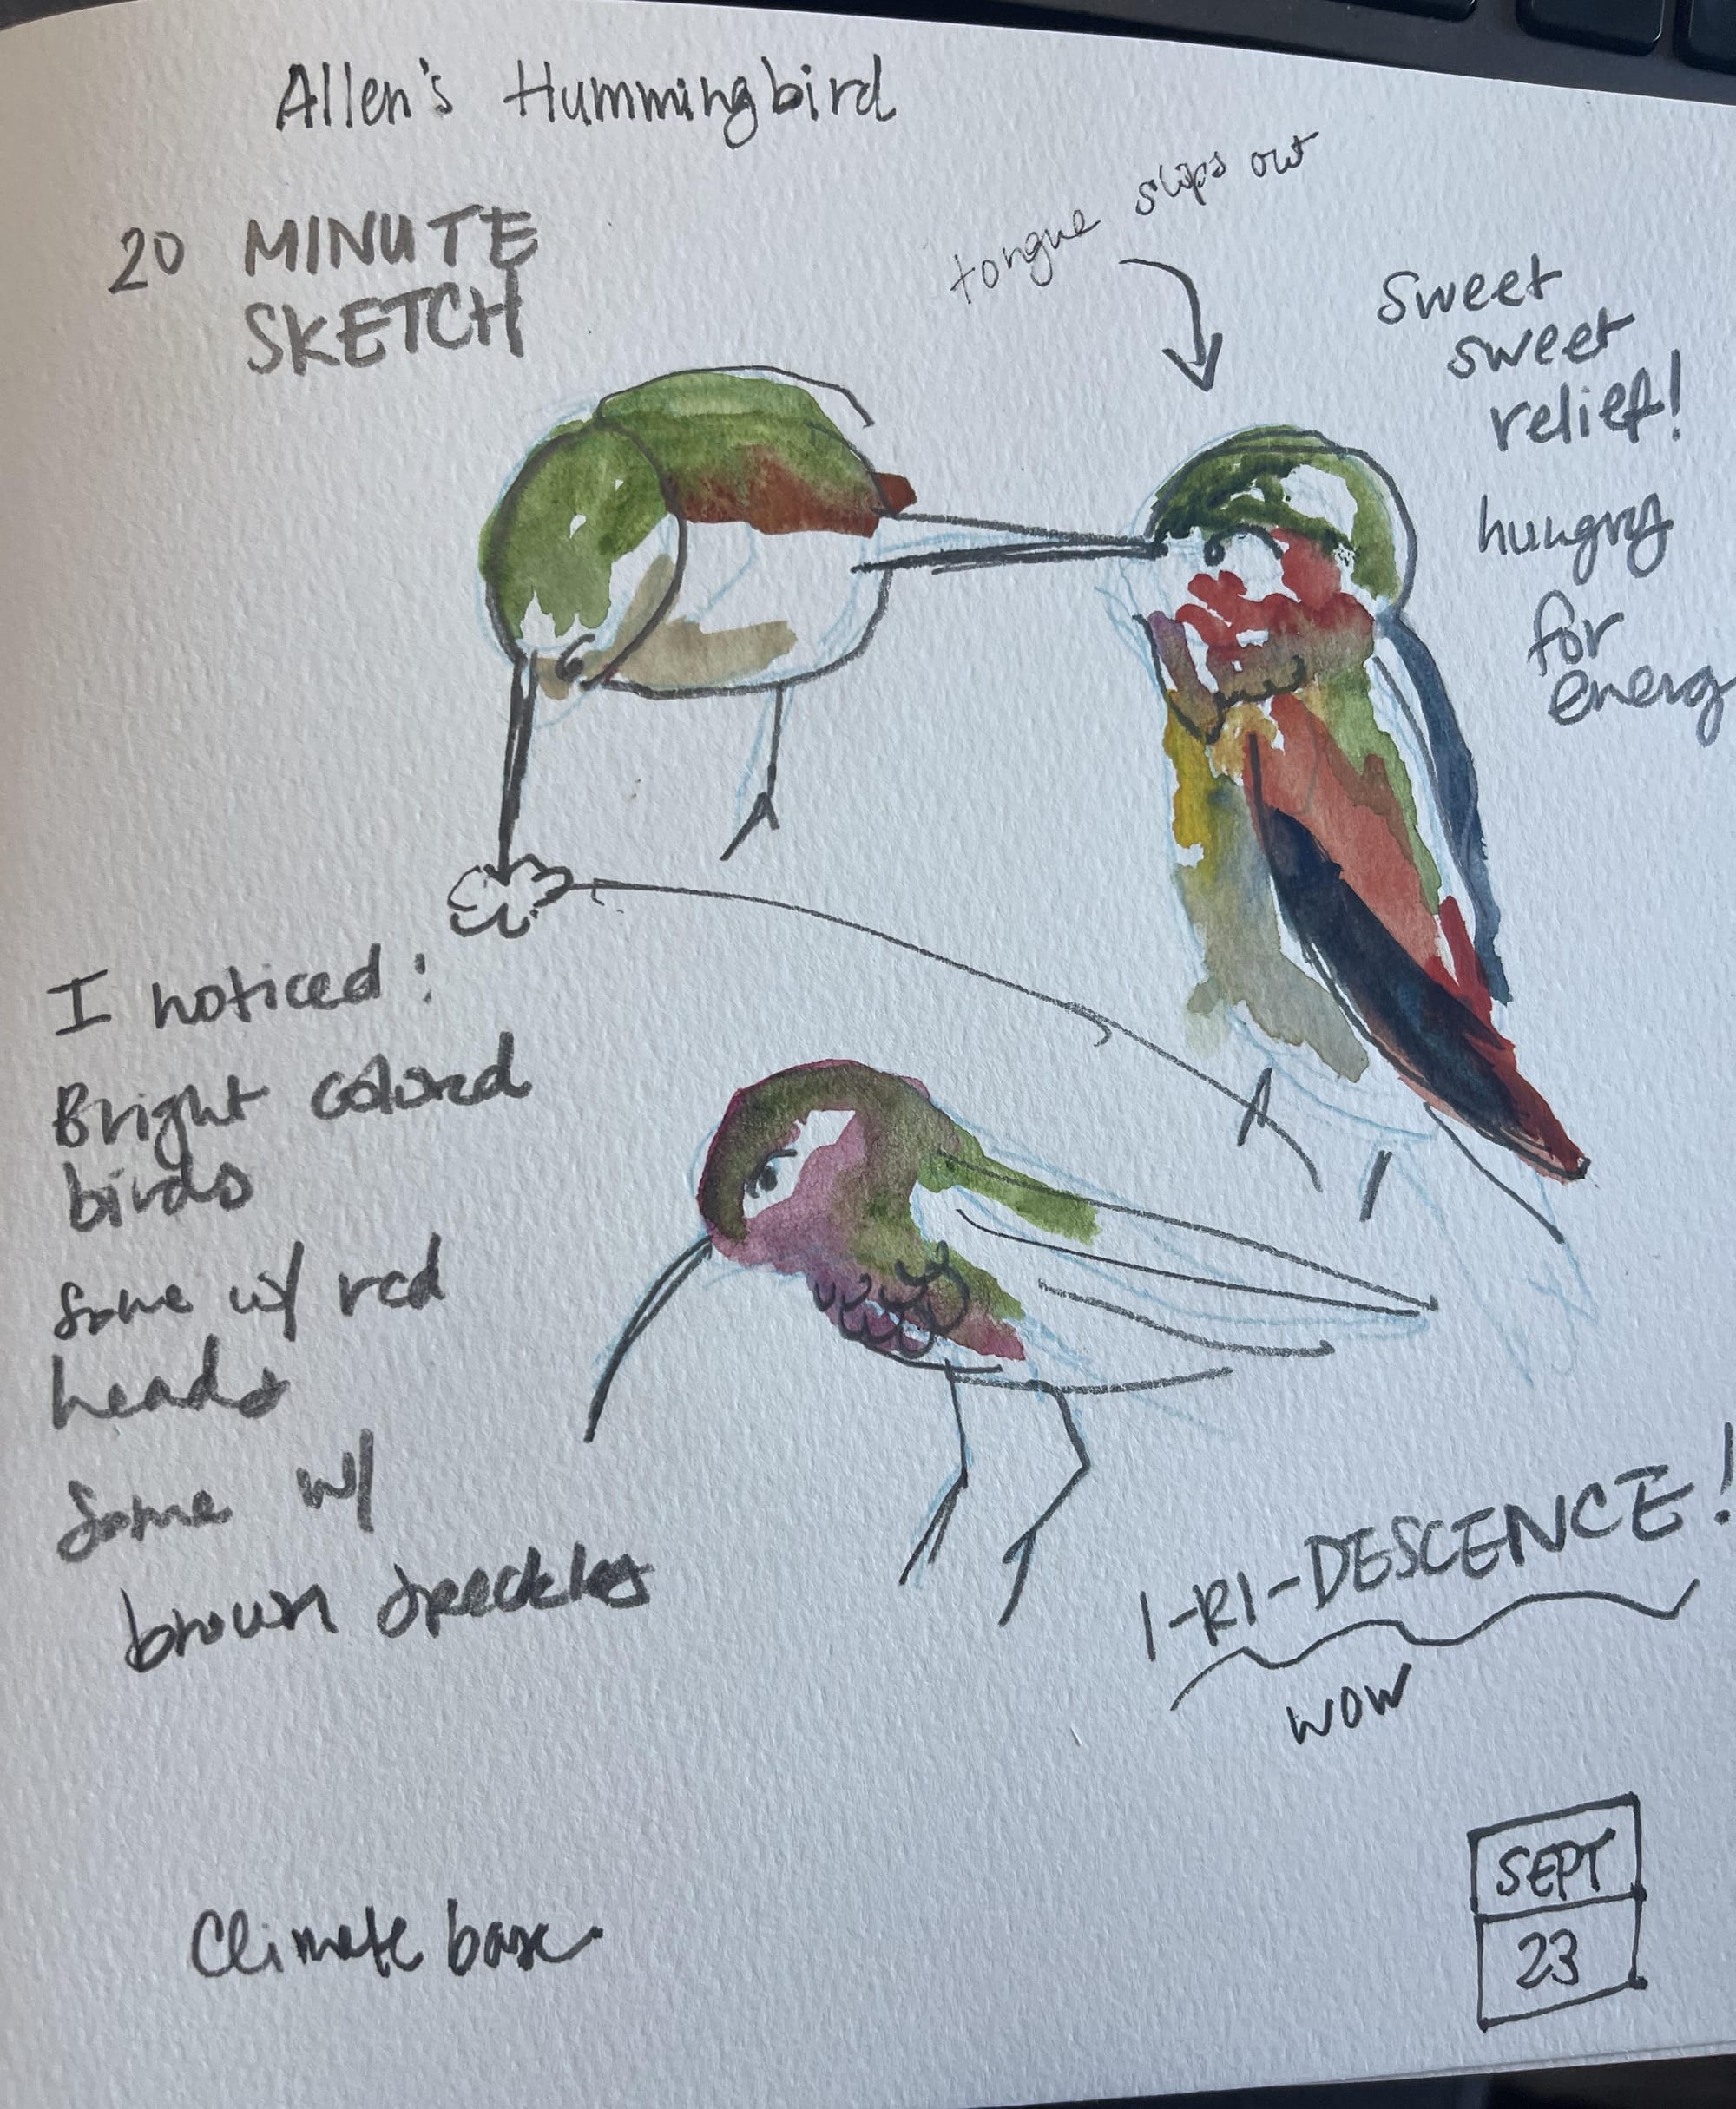 Allen's Hummingbird
20 MINUTE
SKETCH
tongue slips out
Sweet
sweet
relief!
hungry
for
energy
I noticed:
Bright colored
birds
Some w/ red
heads
Some w/
brown speckles
I-RI-DESCENCE!
WOW
Climate base
SEPT
23